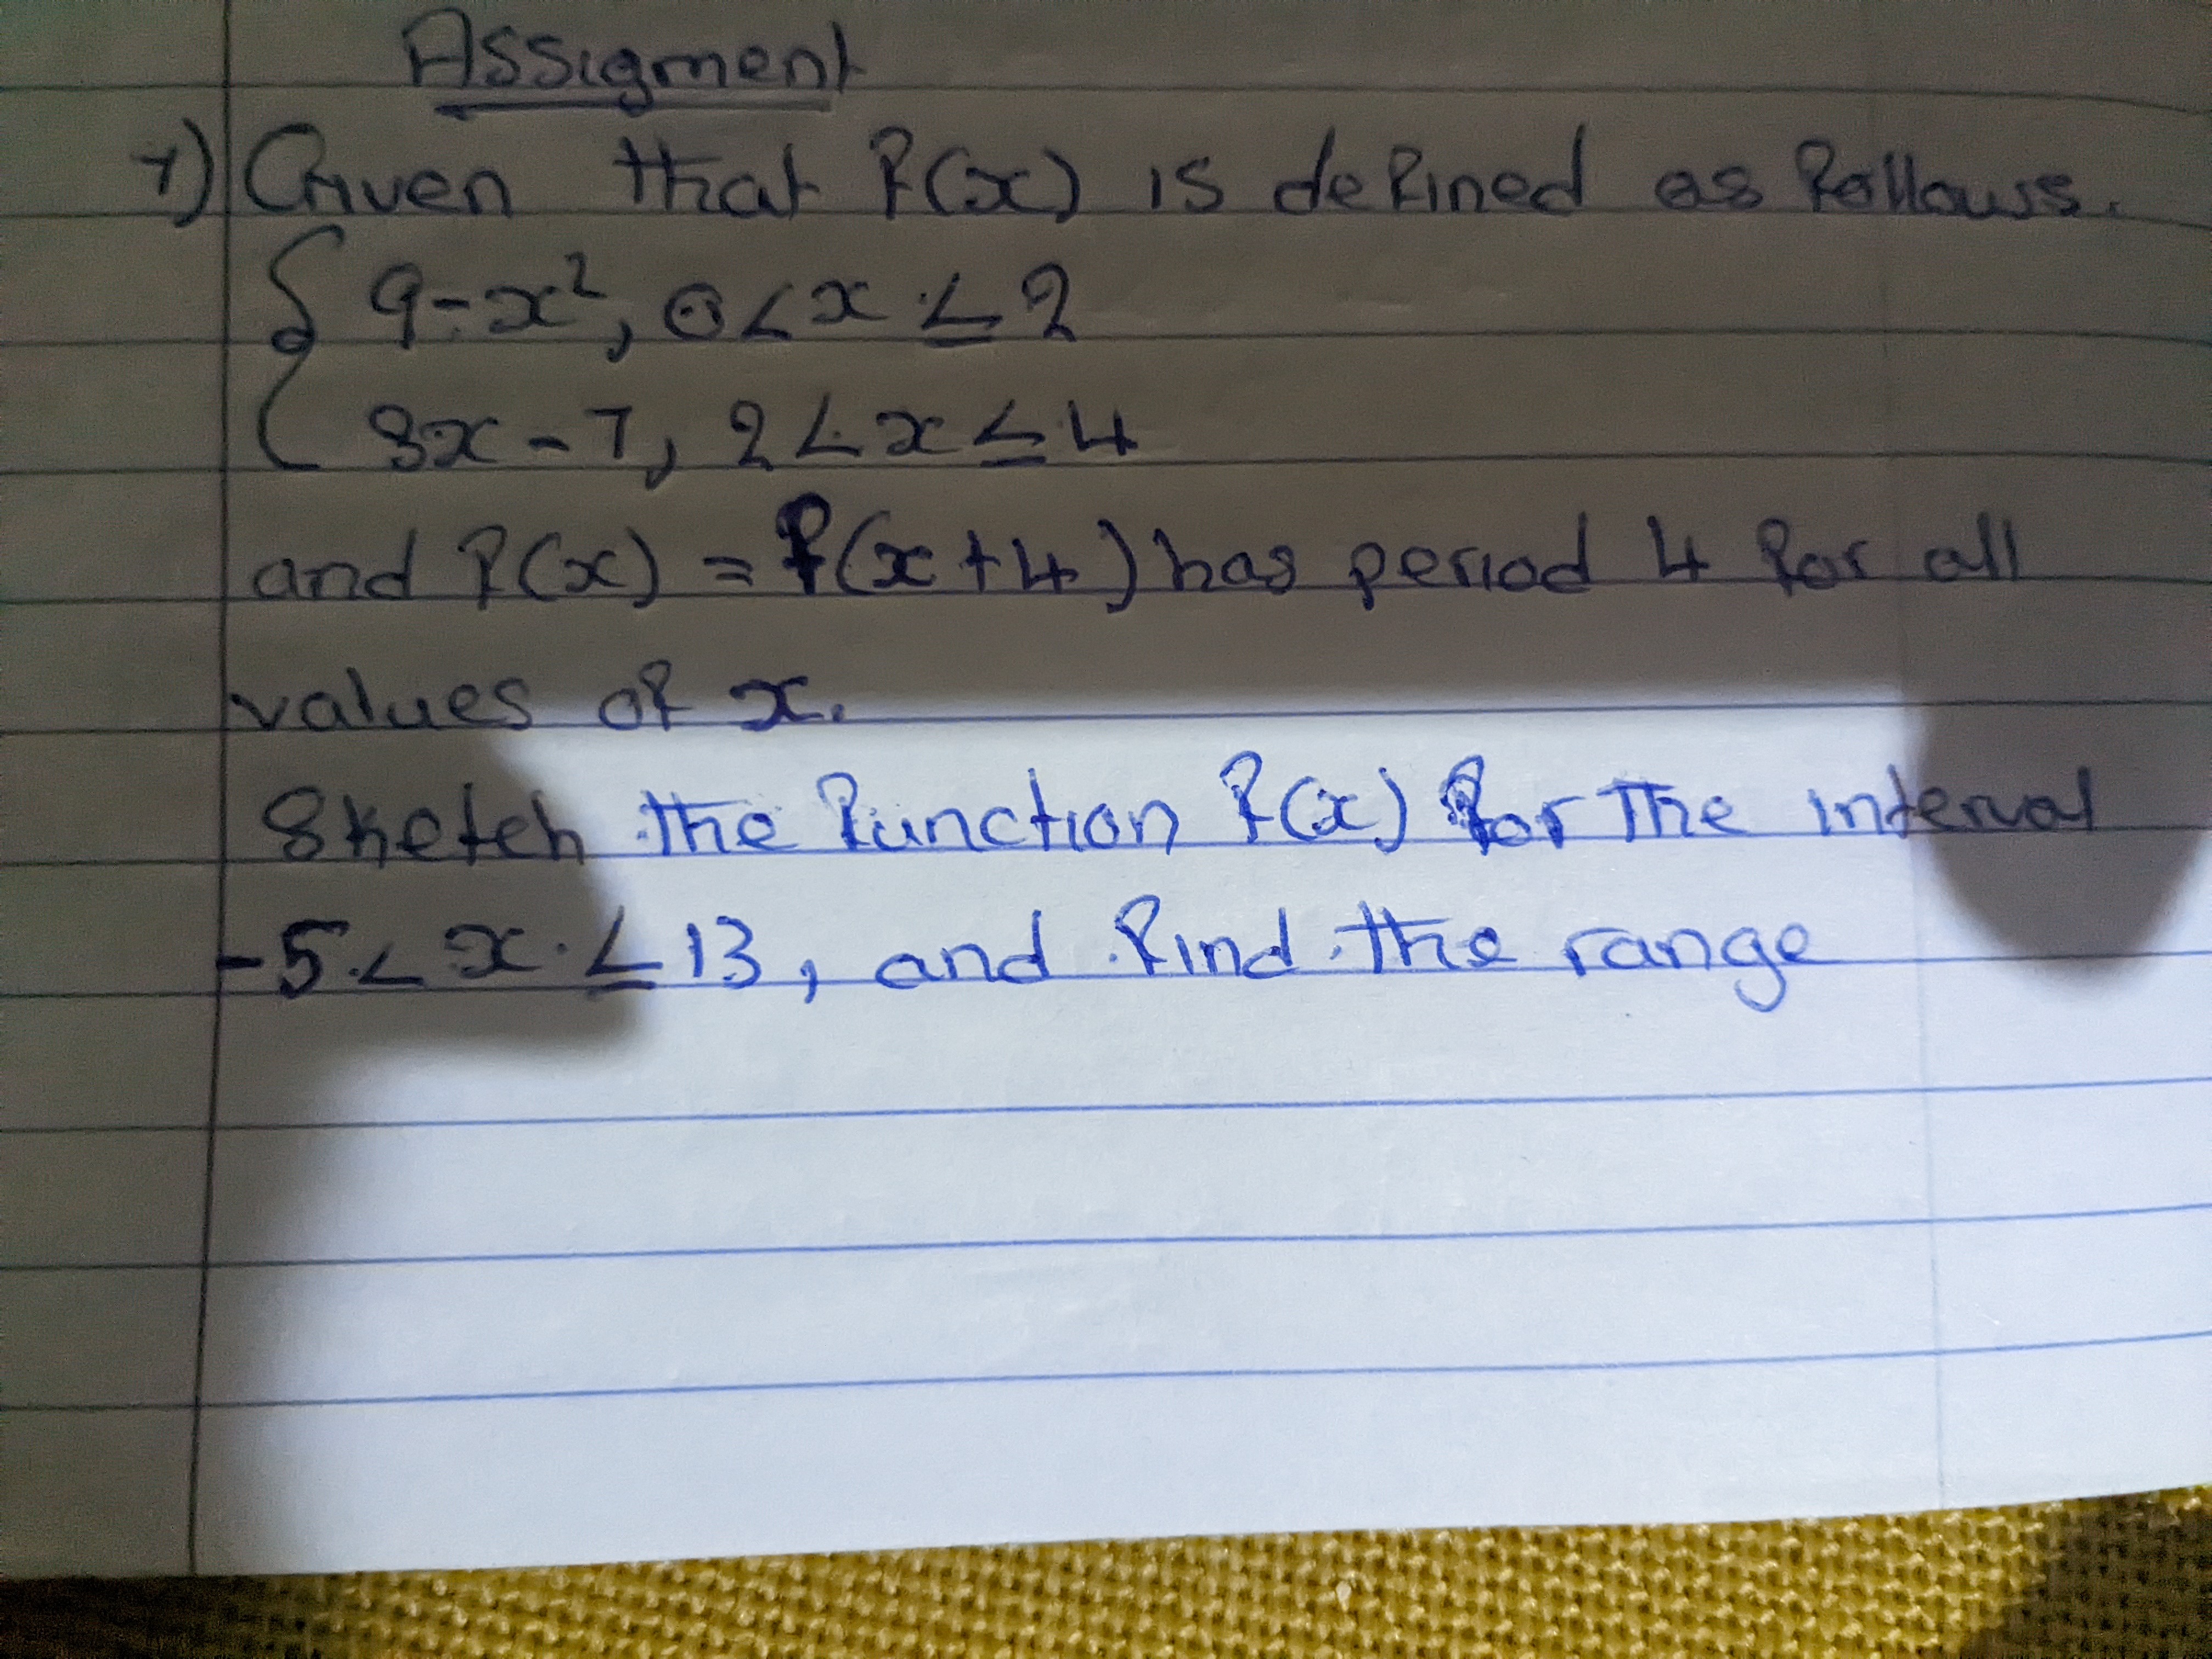 Assigment
1) Given that f(x) is defined as follows.
{ 9-x², 0<x≤2
3x-7, 2<x≤4
and f(x) = f(x+4) has period 4 for all
values of x.
Sketch the function f(x) for the interval
-5<x≤13, and find the range